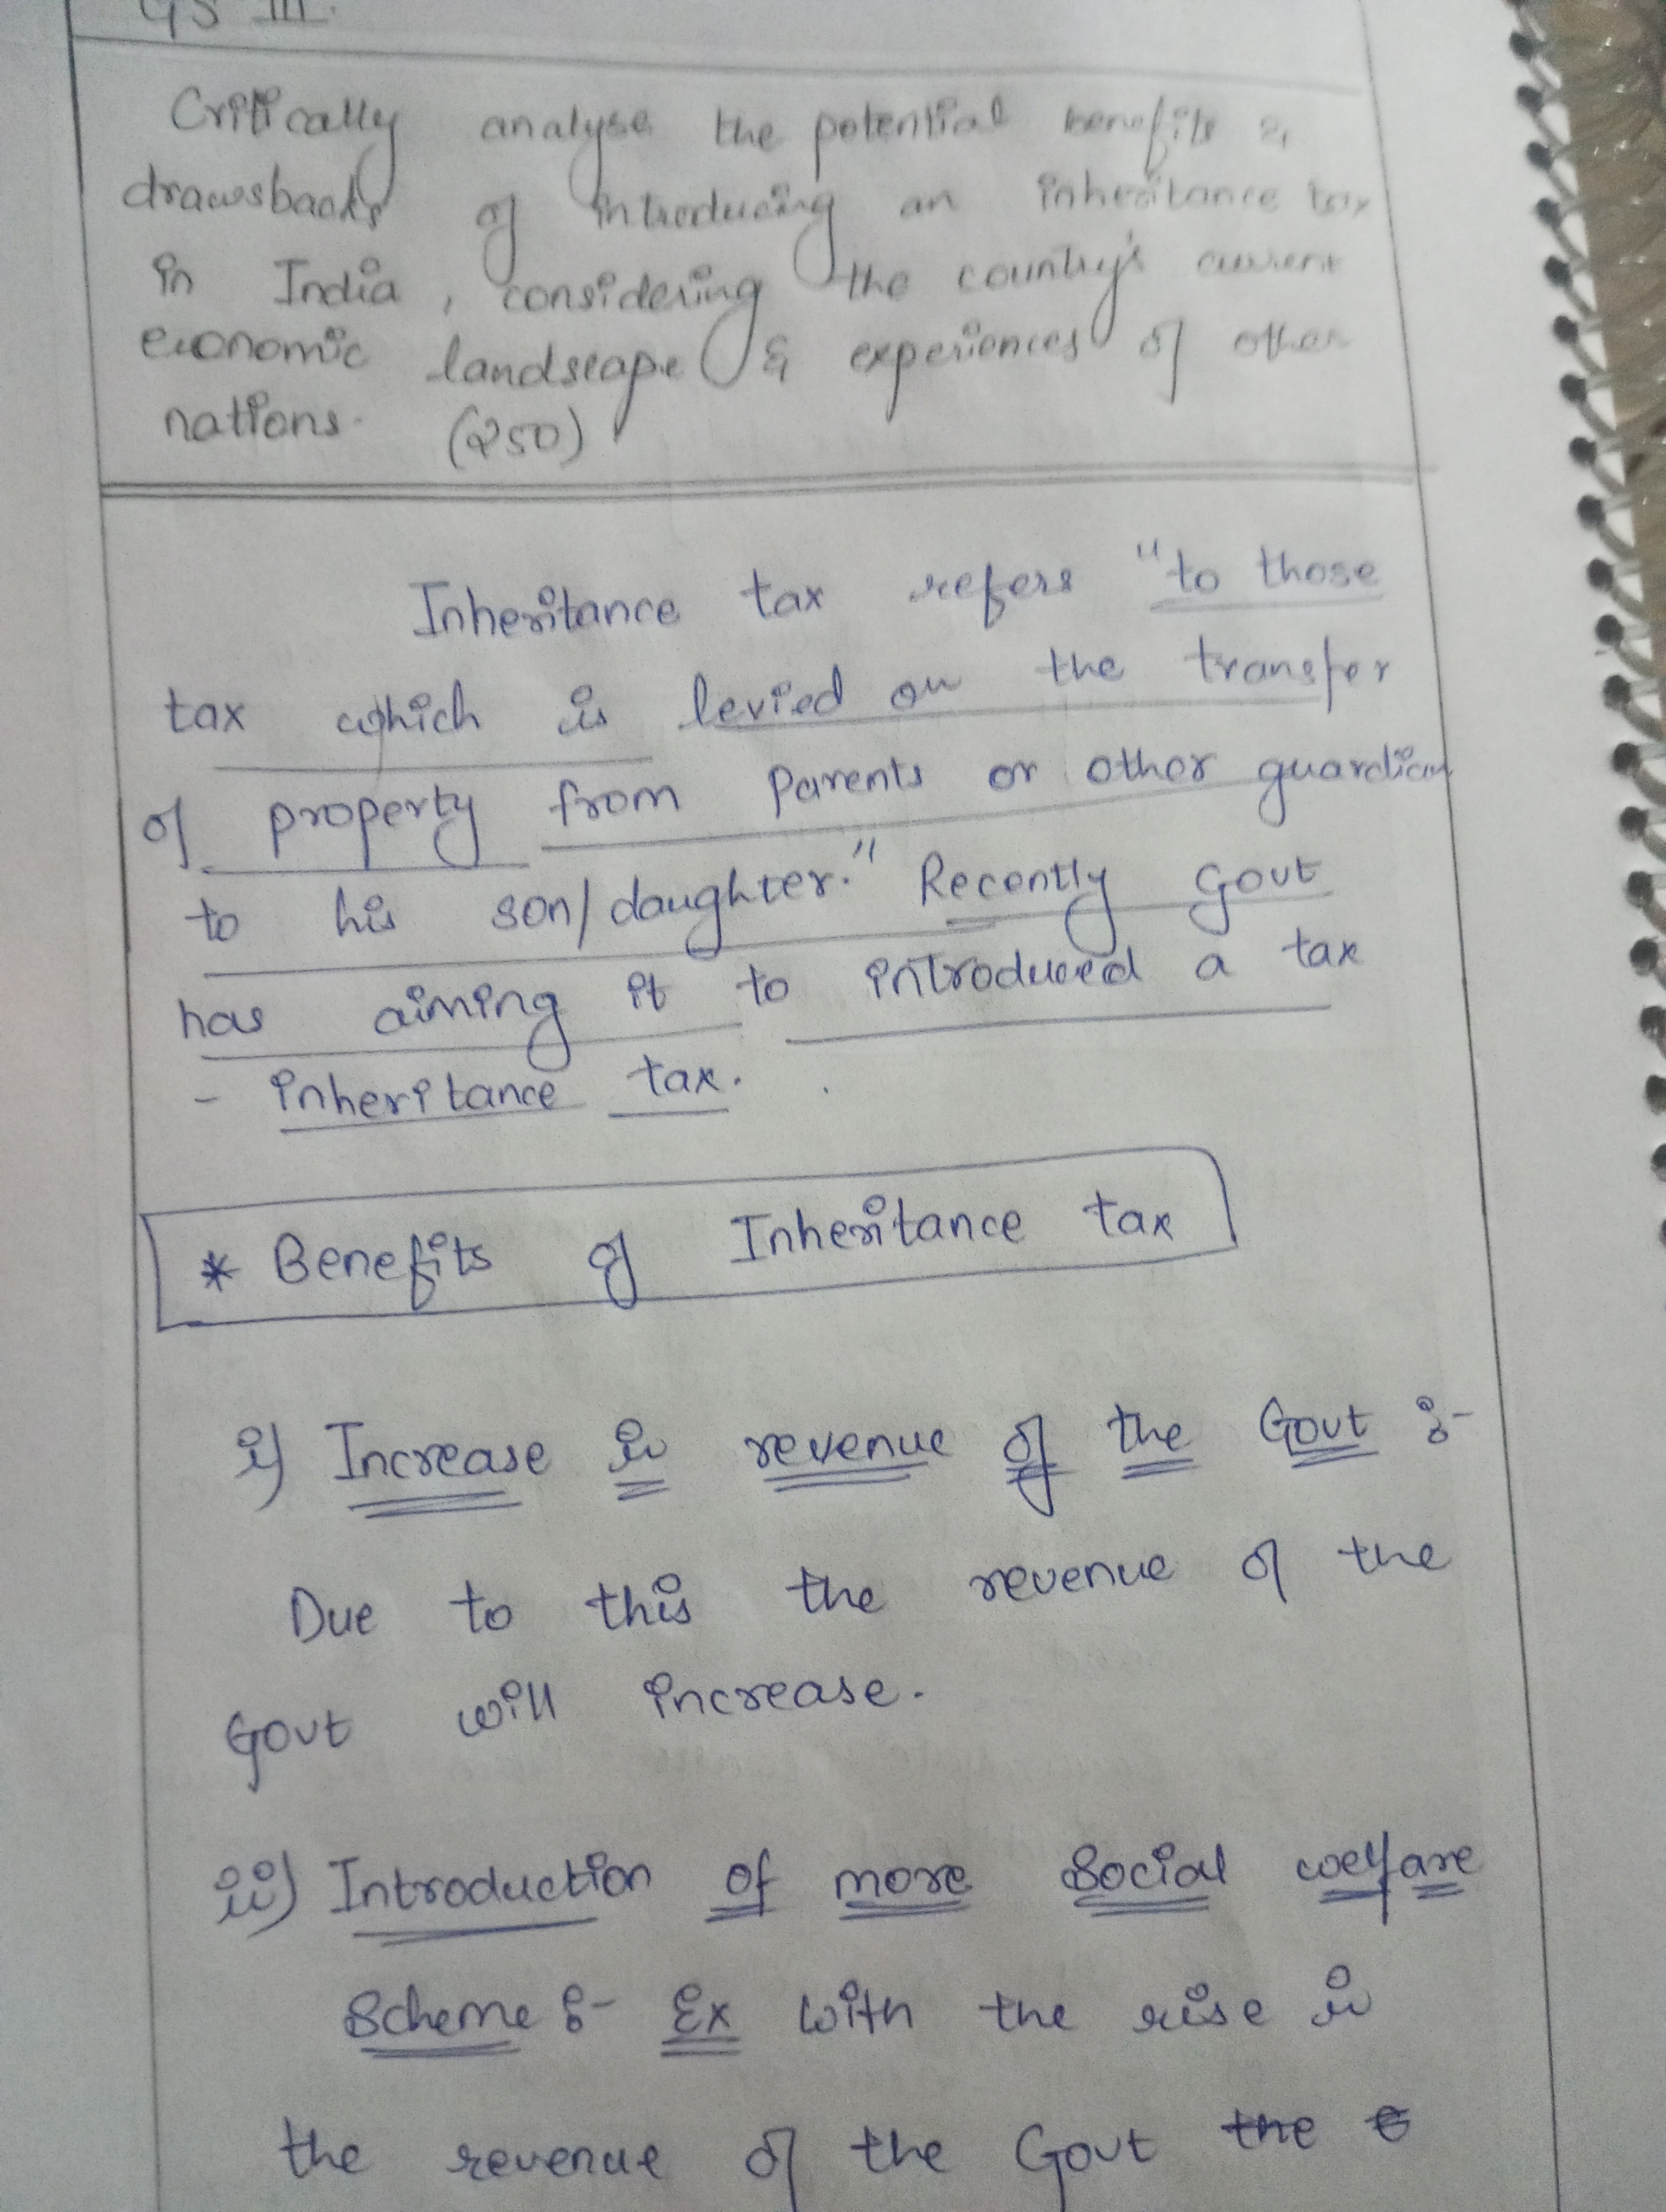 GS III.
Critically analyse the potential benefits &
drawsbacks of introducing an inheritance tax
in India, considering the country's current
economic landscape & experiences of other
nations. (250)
Inheritance tax refers "to those
tax which is levied on the transfer
of property from Parents or other guardian
to his son/daughter." Recently Govt
has aiming it to introduced a tax
- inheritance tax.
* Benefits of Inheritance tax
i) Increase in revenue of the Govt :-
Due to this the revenue of the
Govt will increase.
ii) Introduction of more Social welfare
Scheme :- Ex With the rise in
the revenue of the Govt the